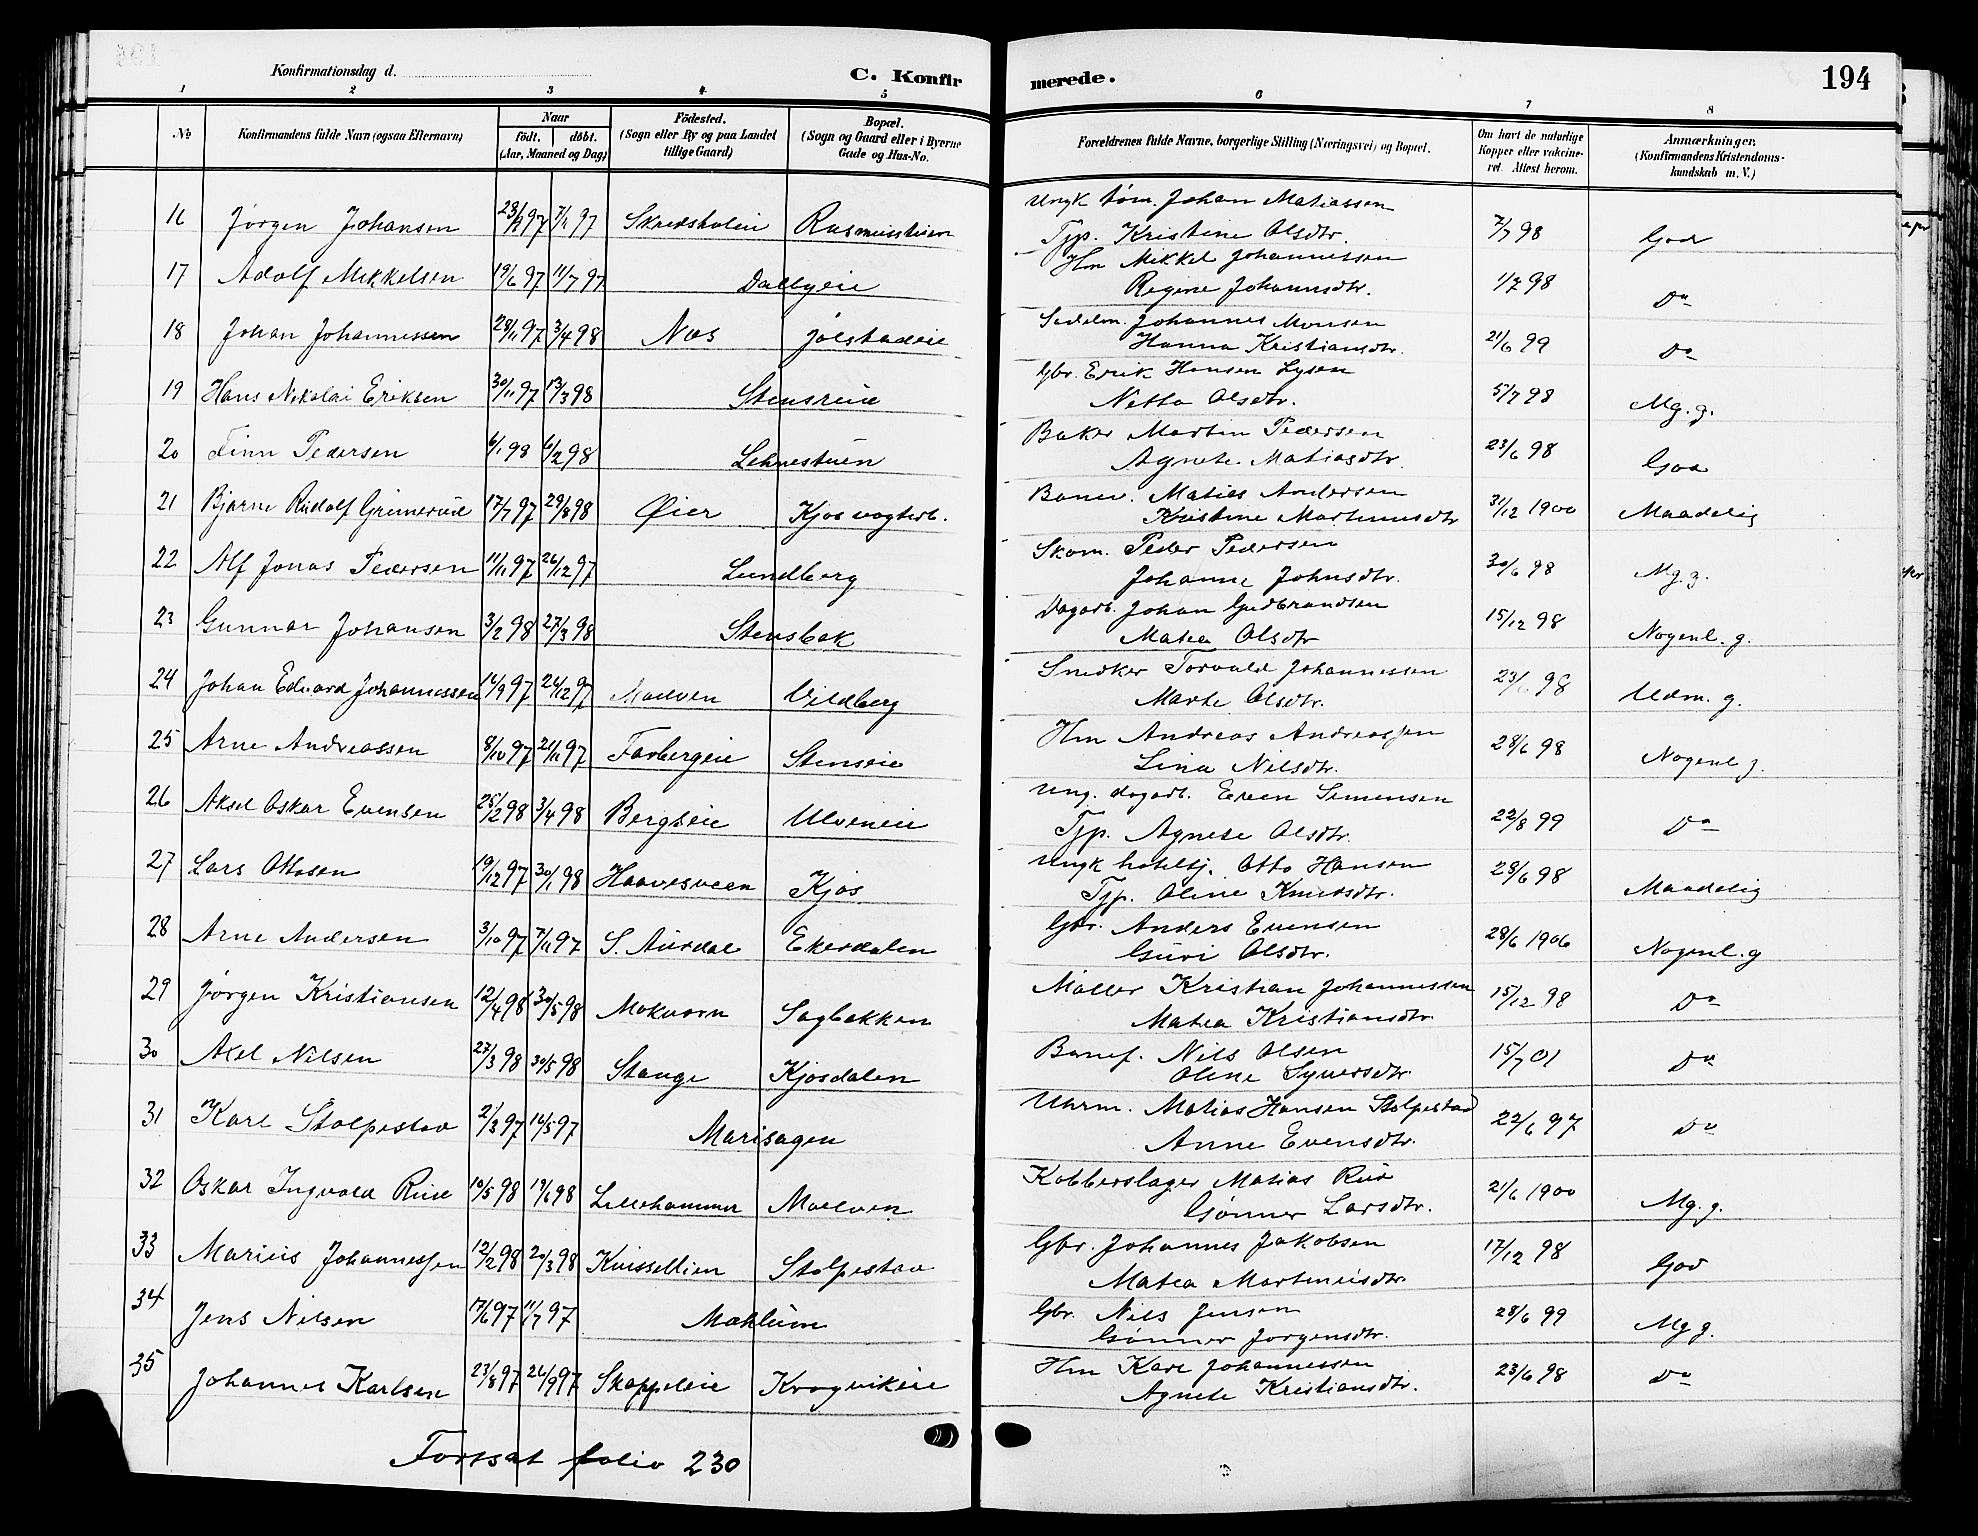 Konfirmationsdag d.
C. Konfir
merede.
194
1 2 3 4 5 6 7 8
No
Konfirmandens fulde Navn (ogsaa Efternavn)
Naar
født. døbt.
(Aar, Maaned og Dag)
Fødested.
(Sogn eller By og paa Landet
tillige Gaard)
Bopæl.
(Sogn og Gaard eller i Byerne
Gade og Hus-No.
Forældrenes fulde Navne, borgerlige Stilling (Næringsvei) og Bopæl.
Om havt de naturlige
Kopper eller vakcine-
ret. Attest herom.
Anmærkninger.
(Konfirmandens Kristendoms-
kundskab m. V.)
Ungk. tøm. Johan Matiassen
16 Jørgen Johansen 97 97 Rasmusstuen Tjp. Kristine Olsdtr. 7/7 98 God
Hm Mikkel Johannessen
17 Adolf Mikkelsen 19/6 97 11/7 97 Regine Johannsdtr. 98 Do
Sadelm. Johannes Monsen
18 Johan Johannessen 28/11 97 3/4 98 Næs Jølstadeie Hanna Kristiansdtr. 21/6 99 Do
Gbr. Erik Hansen Lysen
19 Hans Nikolai Eriksen 30/11 97 13/3 98 Stensreie Netta Olsdtr. 5/7 98 Mg. g.
Baker Martin Pedersen
20 Finn Pedersen 6/1 98 6/2 98 Lehnestuen Agnete Matiasdtr. 23/6 98 God
Matias Andersen
21 Bjarne Rudolf Grimerud 17/7 97 29/8 98 Øier Kjos vogterb. Kristine Martinusdtr 31/12 1900 Maadelig
Skom. Peder Pedersen
22 Alf Jonas Pedersen 11/11 97 26/12 97 Lundberg Johanne Johnsdtr. 30/6 98 Mg. g.
Dagarb. Johan Gudbrandsen
23 Gunnar Johansen 3/2 98 27/3 98 Stensbak Matea Olsdtr 15/12 98 Nogenl. g.
Snedker Torvald Johannessen
24 Johan Edvard Johannessen 97 26/12 97 Moelven Vildberg Marte Olsdtr. 23/6 98 Udm. g.
Hm Andreas Andreassen
25 Arne Andreassen 8/10 97 21/11 97 Farbergeie Stenseie Lina Nilsdtr. 28/6 98 Nogenl g.
Ung. dagarb. Even Simensen
26 Aksel Oskar Evensen 25/2 98 3/4 98 Bergseie Ulveneie Tjp. Agnete Olsdtr. 22/8 99 Do
Ungk hoteltj. Otto Hansen
27 Lars Ottosen 19/12 97 30/1 98 Haavesveen Kjos Tjp. Oline Knudsdtr. 28/6 98 Maadelig
Gbr. Anders Evensen
28 Arne Andersen 3/10 97 7/11 97 S. Aurdal Ekerdalen Guri Olsdtr. 28/6 1906 Nogenl. g
Møller Kristian Johannessen
29 Jørgen Kristiansen 12/4 98 30/5 98 Mokvarn Sagbakken Matea Kristiansdtr. 15/12 98 Do
Banef. Nils Olsen
30 Axel Nilsen 27/3 98 30/5 98 Stange Kjosdalen Oline Syversdtr. 15/7 01 Do
Uhrm. Matias Hansen Stolpestad
31 Karl Stolpestad 2/3 97 16/5 97 Marisagen Anne Evensdtr. 22/6 97 Do
Kobberslager Matias Rud
32 Oskar Ingvald Rud 10/5 98 19/6 98 Lillehammer Moelven Gønner Larsdtr. 21/6 1900 Mg. g.
Gbr. Johannes Jakobsen
33 Marius Johannessen 12/2 98 20/3 98 Kvissellien Stolpestad Matea Martinusdtr 17/12 98 God
Gbr. Nils Jensen
34 Jens Nilsen 17/6 97 11/7 97 Mæhlum Gønner Jørgensdtr. 28/6 99 Mg g.
Hm Karl Johannessen
35 Johannes Karlsen 23/8 97 26/9 97 Skappeleie Krogvikeie Agnete Kristiansdtr. 23/6 98 Do
Fortsat folio 230